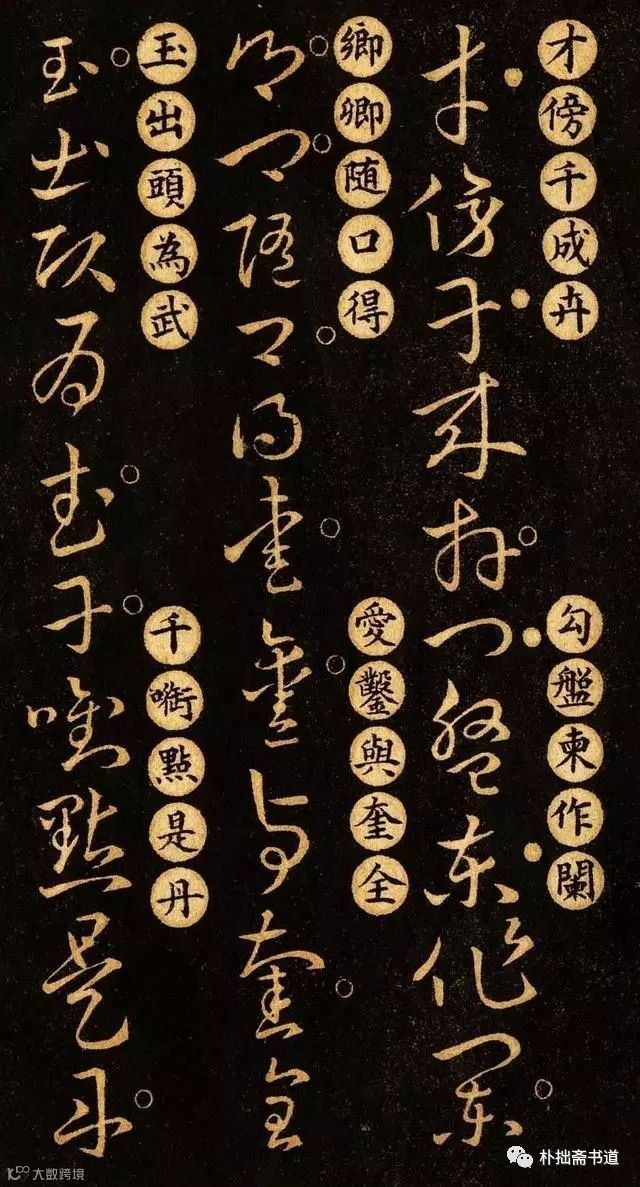 才傍千成卉
勾盤柬作闌
卿卿随口得
愛鑿與奎全
玉出頭為武
千㘅點是丹
朴拙斋书道
大数跨境